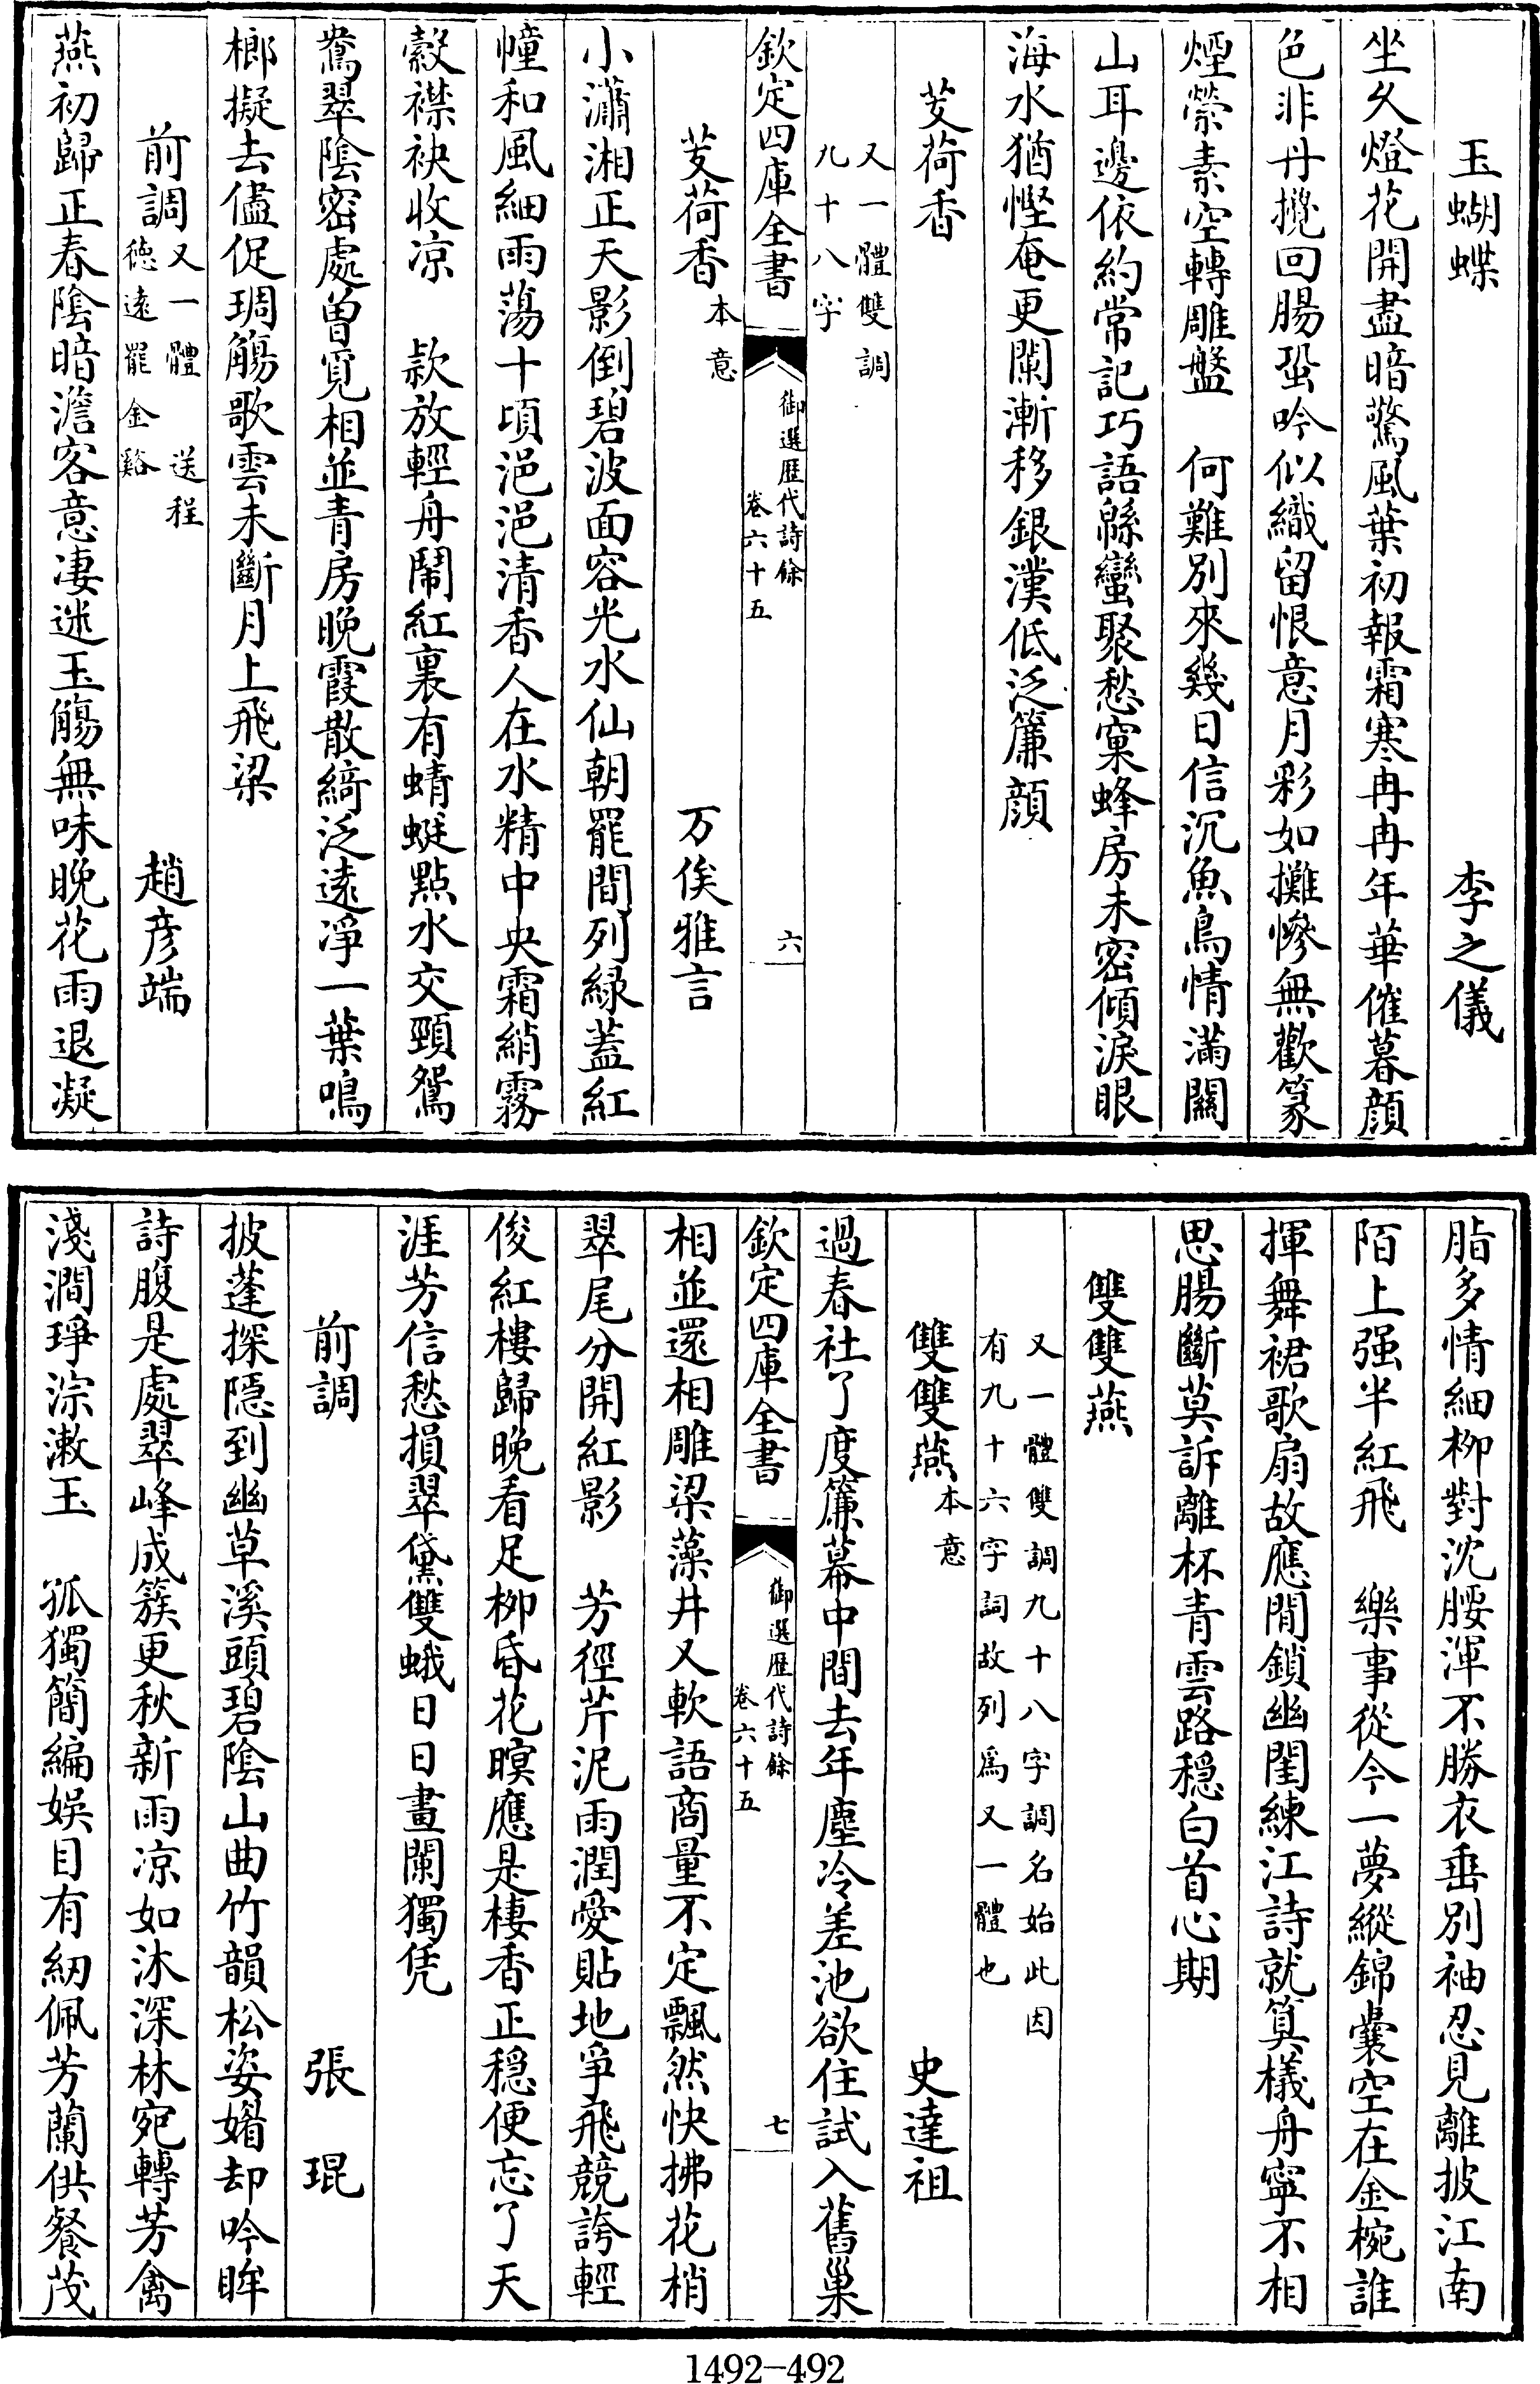 玉蝴蝶 李之儀
坐久燈花開盡暗驚風葉初報霜寒冉冉年華催暮顔
色非丹攪回腸蛩吟似織留恨意月彩如攤慘無歡篆
煙縈素空轉雕盤 何難別來幾日信沉魚鳥情滿闗
山耳邊依約常記巧語緜蠻聚愁窠蜂房未密傾淚眼
海水猶慳奄更闌漸移銀漢低泛簾顔
芰荷香
又一體雙調
九十八字
欽定四庫全書 御選歴代詩餘 卷六十五 六
芰荷香本意 万俟雅言
小瀟湘正天影倒碧波面容光水仙朝罷間列緑蓋紅
幢和風細雨蕩十頃浥浥清香人在水精中央霜綃霧
縠襟袂收凉 欵放輕舟鬧紅裏有蜻蜓點水交頸鴛
鴦翠陰密處曽覓相並青房晚霞散綺泛逺浄一葉鳴
榔擬去儘促琱觴歌雲未斷月上飛梁
前調又一體 送程
徳逺罷金谿 趙彦端
燕初歸正春陰暗澹客意凄迷玉觴無味晚花雨退凝
脂多情細柳對沈腰渾不勝衣垂別袖忍見離披江南
陌上强半紅飛 樂事從今一夢縱錦囊空在金椀誰
揮舞裙歌扇故應閒鎖幽閨練江詩就算檥舟寧不相
思腸斷莫訴離杯青雲路穏白首心期
雙雙燕
又一體雙調九十八字調名始此因
有九十六字詞故列爲又一體也
雙雙燕本意 史達祖
過春社了度簾幕中間去年塵冷差池欲住試入舊巢
欽定四庫全書 御選歴代詩餘 卷六十五 七
相並還相雕梁藻井又軟語商量不定飄然快拂花梢
翠尾分開紅影 芳徑芹泥雨潤愛貼地爭飛競誇輕
俊紅樓歸晚看足柳昏花暝應是棲香正穏便忘了天
涯芳信愁損翠黛雙蛾日日畫闌獨凭
前調 張琨
披蓬探隠到幽草溪頭碧陰山曲竹韻松姿媚却吟眸
詩腹是處翠峰成簇更秋新雨凉如沐深林宛轉芳禽
淺澗琤淙漱玉 孤獨簡編娱目有紉佩芳蘭供餐茂
1492-492